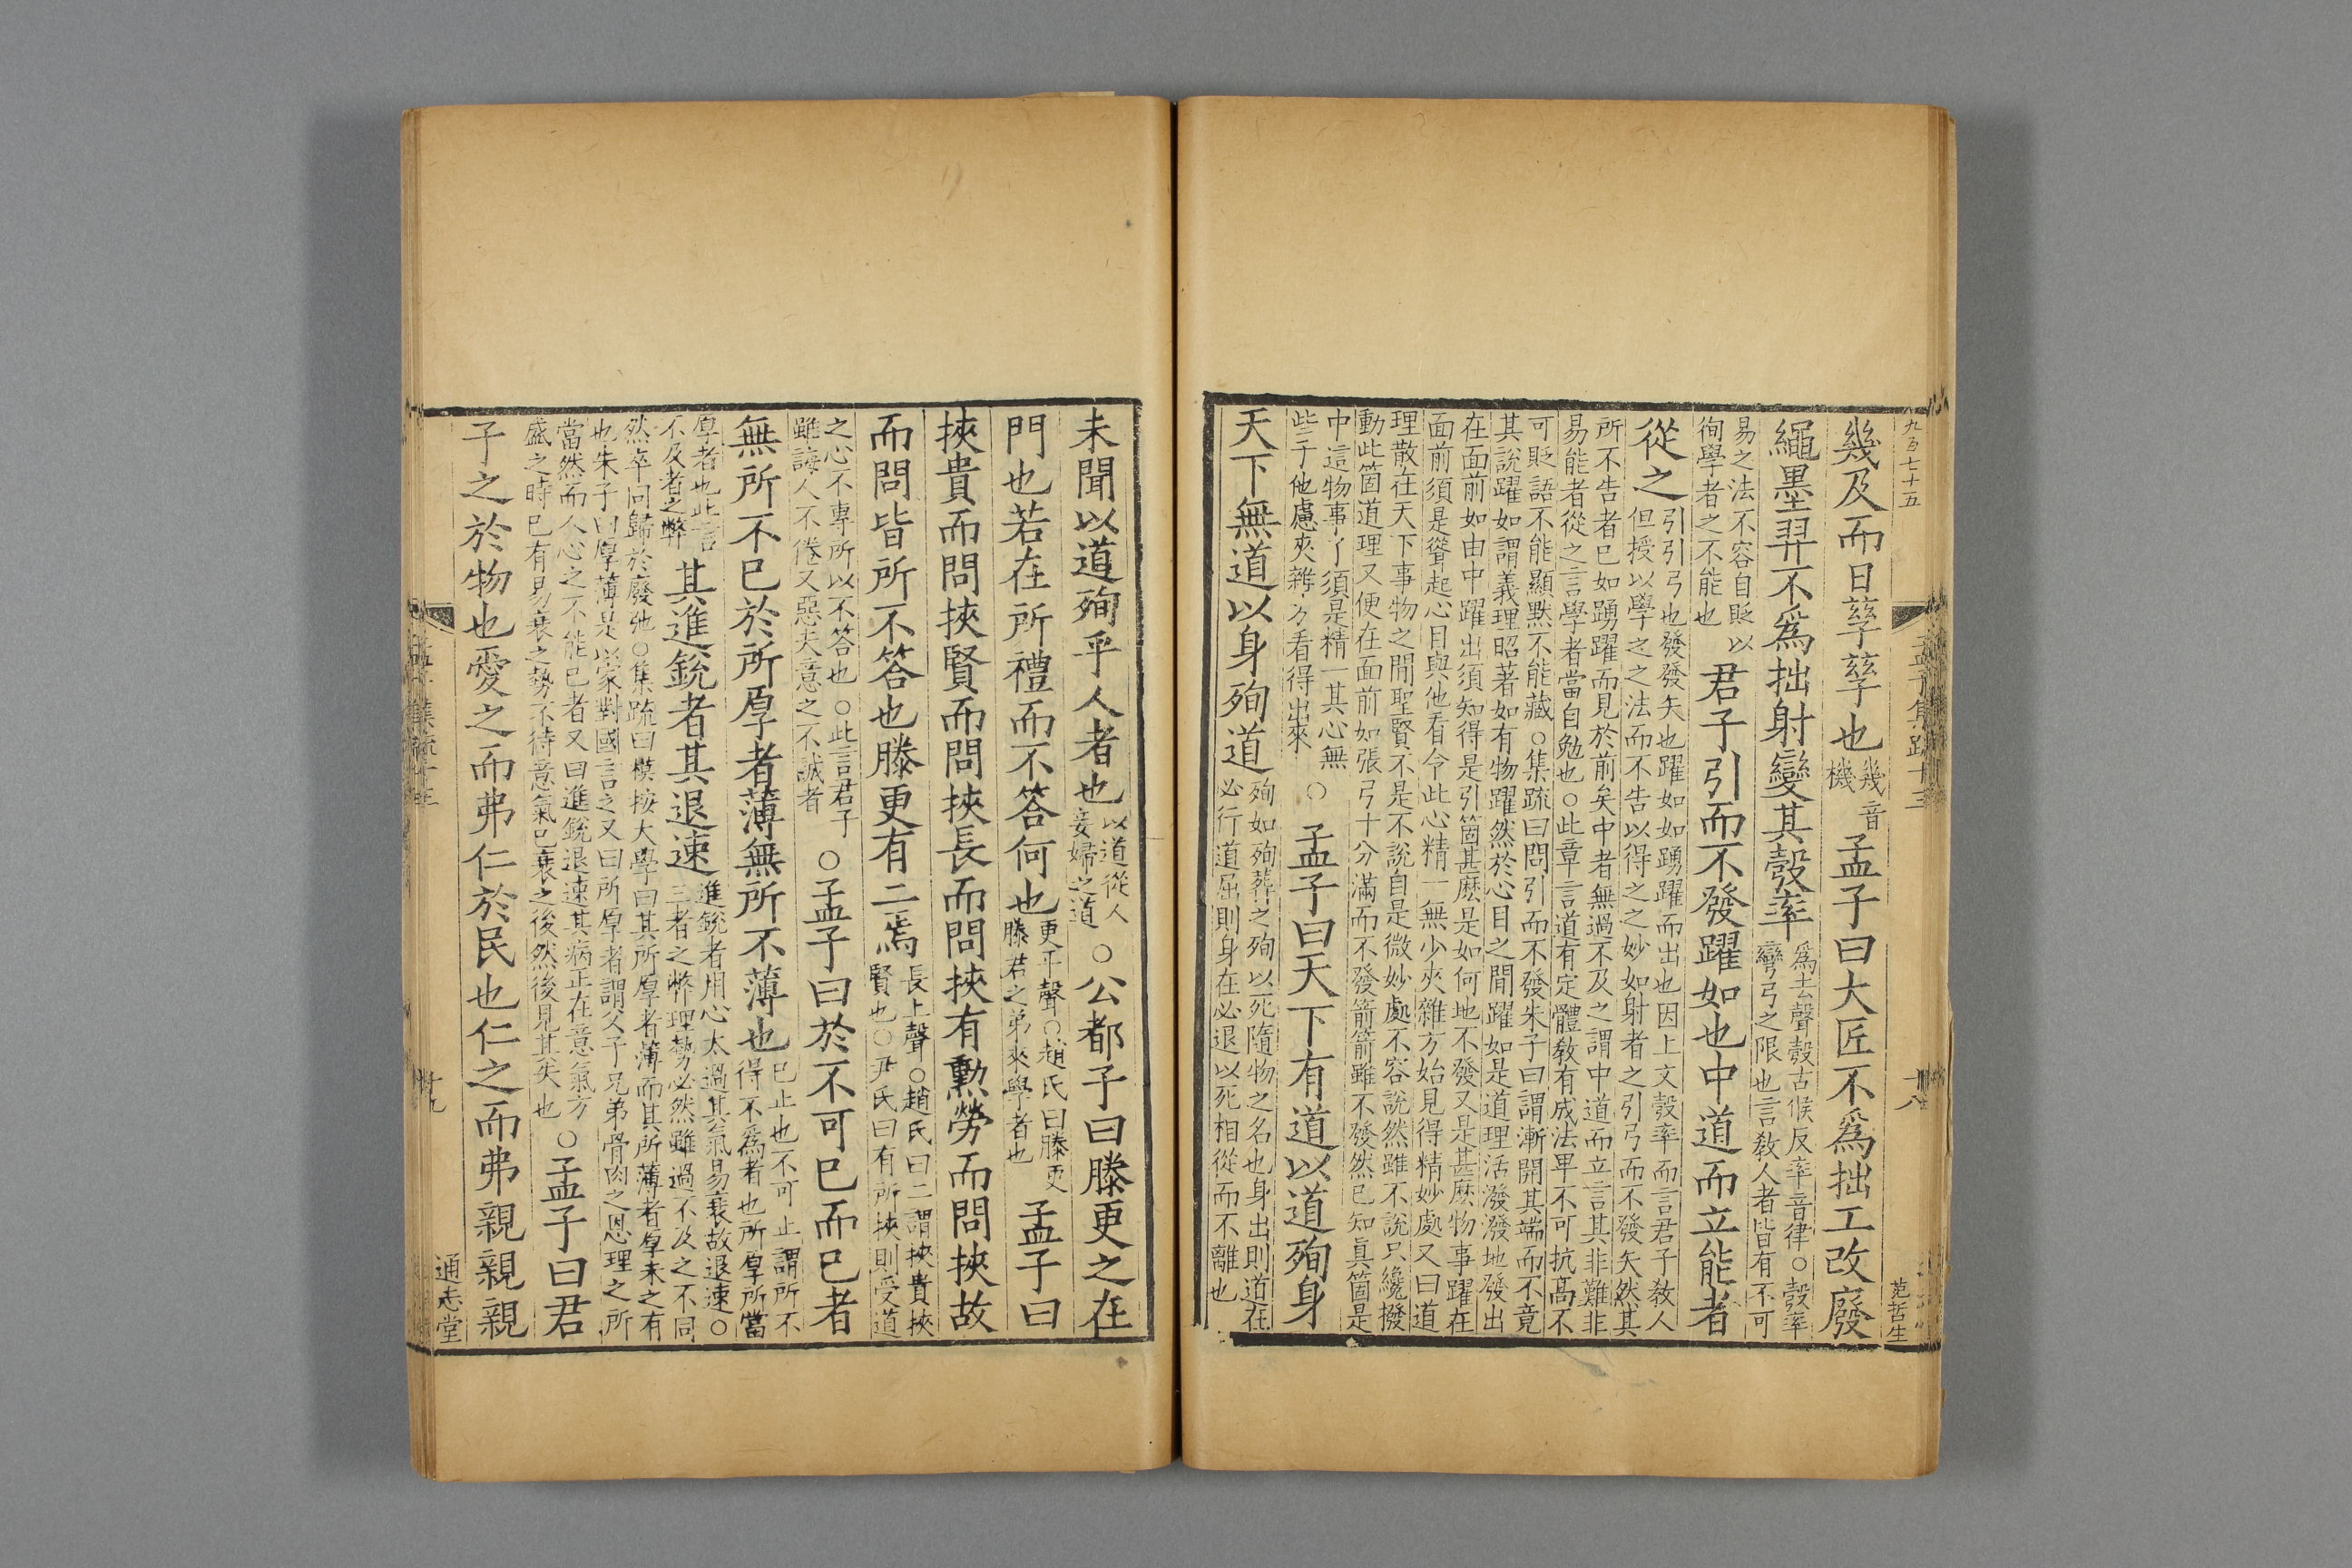 九百七十五
孟子集疏十三
十八
范哲生
幾及而日孳孳也幾音機孟子曰大匠不爲拙工改廢
繩墨羿不爲拙射變其彀率爲去聲彀古候反率音律○彀率彎弓之限也言敎人者皆有不可
易之法不容自貶以徇學者之不能也君子引而不發躍如也中道而立能者
從之引引弓也發發矢也躍如如踴躍而出也因上文彀率而言君子敎人但授以學之之法而不告以得之之妙如射者之引弓而不發矢然其
所不告者已如踴躍而見於前矣中者無過不及之謂中道而立言其非難非易能者從之言學者當自勉也○此章言道有定體敎有成法卑不可抗高不
可貶語不能顯默不能藏○集疏曰問引而不發朱子曰謂漸開其端而不竟其說躍如謂義理昭著如有物躍然於心目之閒躍如是道理活潑潑地發出
在面前如由中躍出須知得是引箇甚麽是如何地不發又是甚麽物事躍在面前須是聳起心目與他看令此心精一無少夾雜方始見得精妙處又曰道
理散在天下事物之閒聖賢不是不說自是微妙處不容說然雖不說只纔撥動此箇道理又便在面前如張弓十分滿而不發箭箭雖不發然已知眞箇是
中這物事了須是精一其心無些子他慮夾雜方看得出來○孟子曰天下有道以道殉身
天下無道以身殉道殉如殉葬之殉以死隨物之名也身出則道在必行道屈則身在必退以死相從而不離也
未聞以道殉乎人者也以道從人妾婦之道○公都子曰滕更之在
門也若在所禮而不答何也更平聲○趙氏曰滕更滕君之弟來學者也孟子曰
挾貴而問挾賢而問挾長而問挾有勳勞而問挾故
而問皆所不答也滕更有二焉長上聲○趙氏曰二謂挾貴挾賢也○尹氏曰有所挾則受道
之心不專所以不答也○此言君子雖誨人不倦又惡夫意之不誠者○孟子曰於不可已而已者
無所不已於所厚者薄無所不薄也已止也不可止謂所不得不爲者也所厚所當
厚者也此言不及者之弊其進銳者其退速進銳者用心太過其氣易衰故退速○三者之弊理勢必然雖過不及之不同
然卒同歸於廢弛○集疏曰模按大學曰其所厚者薄而其所薄者厚未之有也朱子曰厚薄是以家對國言之又曰所厚者謂父子兄弟骨肉之恩理之所
當然而人心之不能已者又曰進銳退速其病正在意氣方盛之時已有易衰之勢不待意氣已衰之後然後見其失也○孟子曰君
子之於物也愛之而弗仁於民也仁之而弗親親親
十九
通志堂